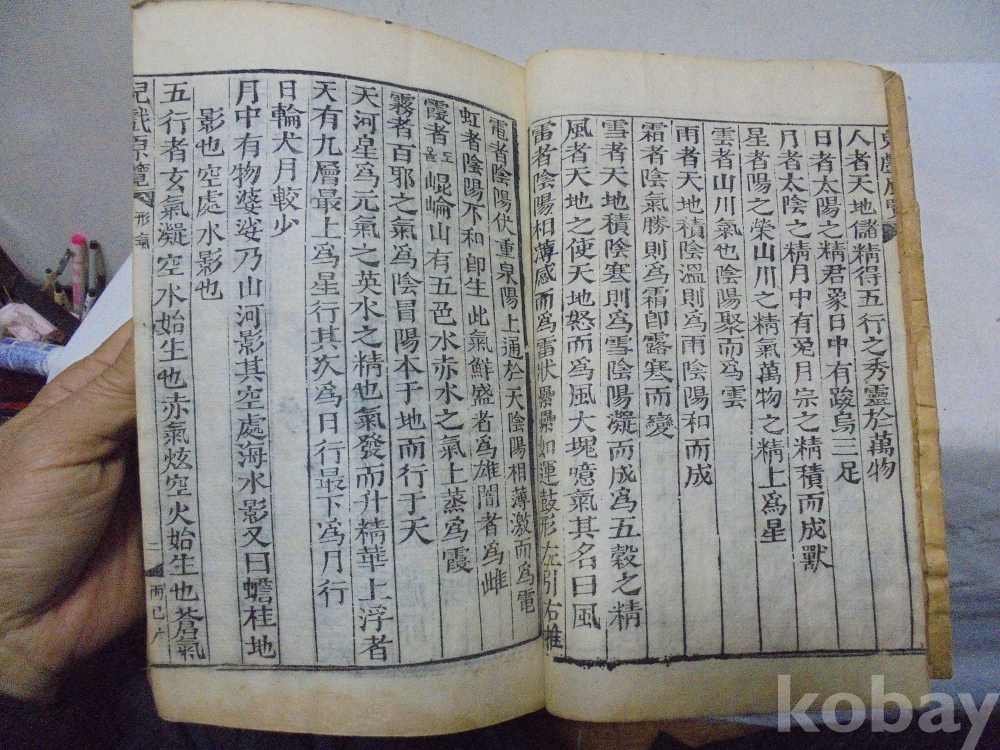 人者天地儲精得五行之秀靈於萬物
日者太陽之精君象日中有踆烏三足
月者太陰之精月中有兎月宗之精積而成獸
星者陽之榮山川之精氣萬物之精上爲星
雲者山川氣也陰陽聚而爲雲
雨者天地積陰溫則爲雨陰陽和而成
霜者陰氣勝則爲霜卽露寒而變
雪者天地積陰寒則爲雪陰陽凝而成爲五穀之精
風者天地之使天地怒而爲風大塊噫氣其名曰風
雷者陰陽相薄感而爲雷狀纍纍如運鼓形左引右推
電者陰陽伏重泉陽上通於天陰陽相薄激而爲電
虹者陰陽不和卽生此氣鮮盛者爲雄闇者爲雌
霞者 崐崘山有五色水赤水之氣上蒸爲霞
霧者百邪之氣爲陰冒陽本于地而行于天
天河星爲元氣之英水之精也氣發而升精華上浮者
天有九層最上爲星行其次爲日行最下爲月行
日輪大月較少
月中有物婆娑乃山河影其空處海水影又曰蟾桂地
影也空處水影也
五行者玄氣凝空水始生也赤氣炫空火始生也蒼氣
兒戲原覽 形氣 二
kobay